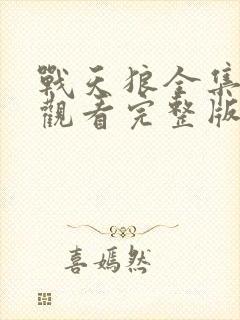 戰天狼全集
觀看完整版
喜嫣然